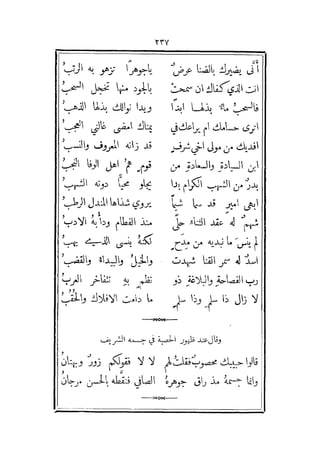 ٢٣٧
أَنَّى يضيرك بالضنا عرضٌ ياجوهرًا تزهو به الرتبُ
انت الذي كفاك ان سمحتْ بالجود منها تخجل السحبُ
فالسحبُ مائه بذلهـا ابدًا ويدا نوالك بذلها الذهبُ
اترى حسامك ام يراعك في يمناك امضى غالني العجبُ
افديك من مولى اخي شرفٍ قد زانه المعروف والنسبُ
ابن السيادة والسعادة من قومٍ همُ اهل الوفا النجبُ
بدرٌ من الشهب الكرام بدا يجلو محيًّا دونه الشهبُ
ابهى اميرٍ قد سما شيمًا يروي شذاها المندل الرطبُ
شهمٌ له عقد الثناء حلًى منذ الفطام ودأبهُ الادبُ
لم ينسَ ما نبديه من مدحٍ لكنهُ ينسى الذي يهبُ
اسدٌ له سمر القنا شهدت والخيلُ والبيداء والقضبُ
رب الفصاحة والبلاغة ذو نظمٍ بهِ تتفاخر العربُ
لا زال ذا سلمٍ وذا سلمٍ ما دامت الافلاك والحقُبُ
وقال عند ظهور الحصبة في جسمه الشريف
قالوا حبيبك محصوبٌ فقلت لهم لا لا فقولكم زورٌ وبهتانُ
وانما جسمهُ مذ راق جوهرهُ الصافي فنقَّطه بالحسن مرجانُ